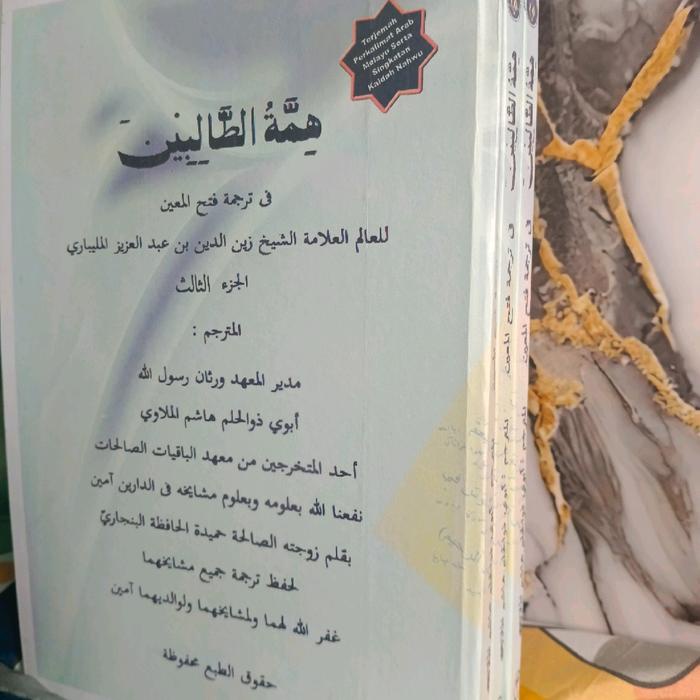 Terjemah
Perkalimat Arab
Melayu Serta
Singkatan
Kaidah Nahwu
هِمَّةُ الطَّالِبِيْنَ
فى ترجمة فتح المعين
للعالم العلامة الشيخ زين الدين بن عبد العزيز المليباري
الجزء الثالث
المترجم :
مدير المعهد ورثان رسول الله
أبوي ذوالحلم هاشم الملاوي
أحد المتخرجين من معهد الباقيات الصالحات
نفعنا الله بعلومه وبعلوم مشايخه فى الدارين آمين
بقلم زوجته الصالحة حميدة الحافظة البنجاريّ
لحفظ ترجمة جميع مشايخهما
غفر الله لهما ولمشايخهما ولوالديهما آمين
حقوق الطبع محفوظة
هِمَّةُ الطَّالِبِيْنَ فى ترجمة فتح المعين
هِمَّةُ الطَّالِبِيْنَ فى ترجمة فتح المعين